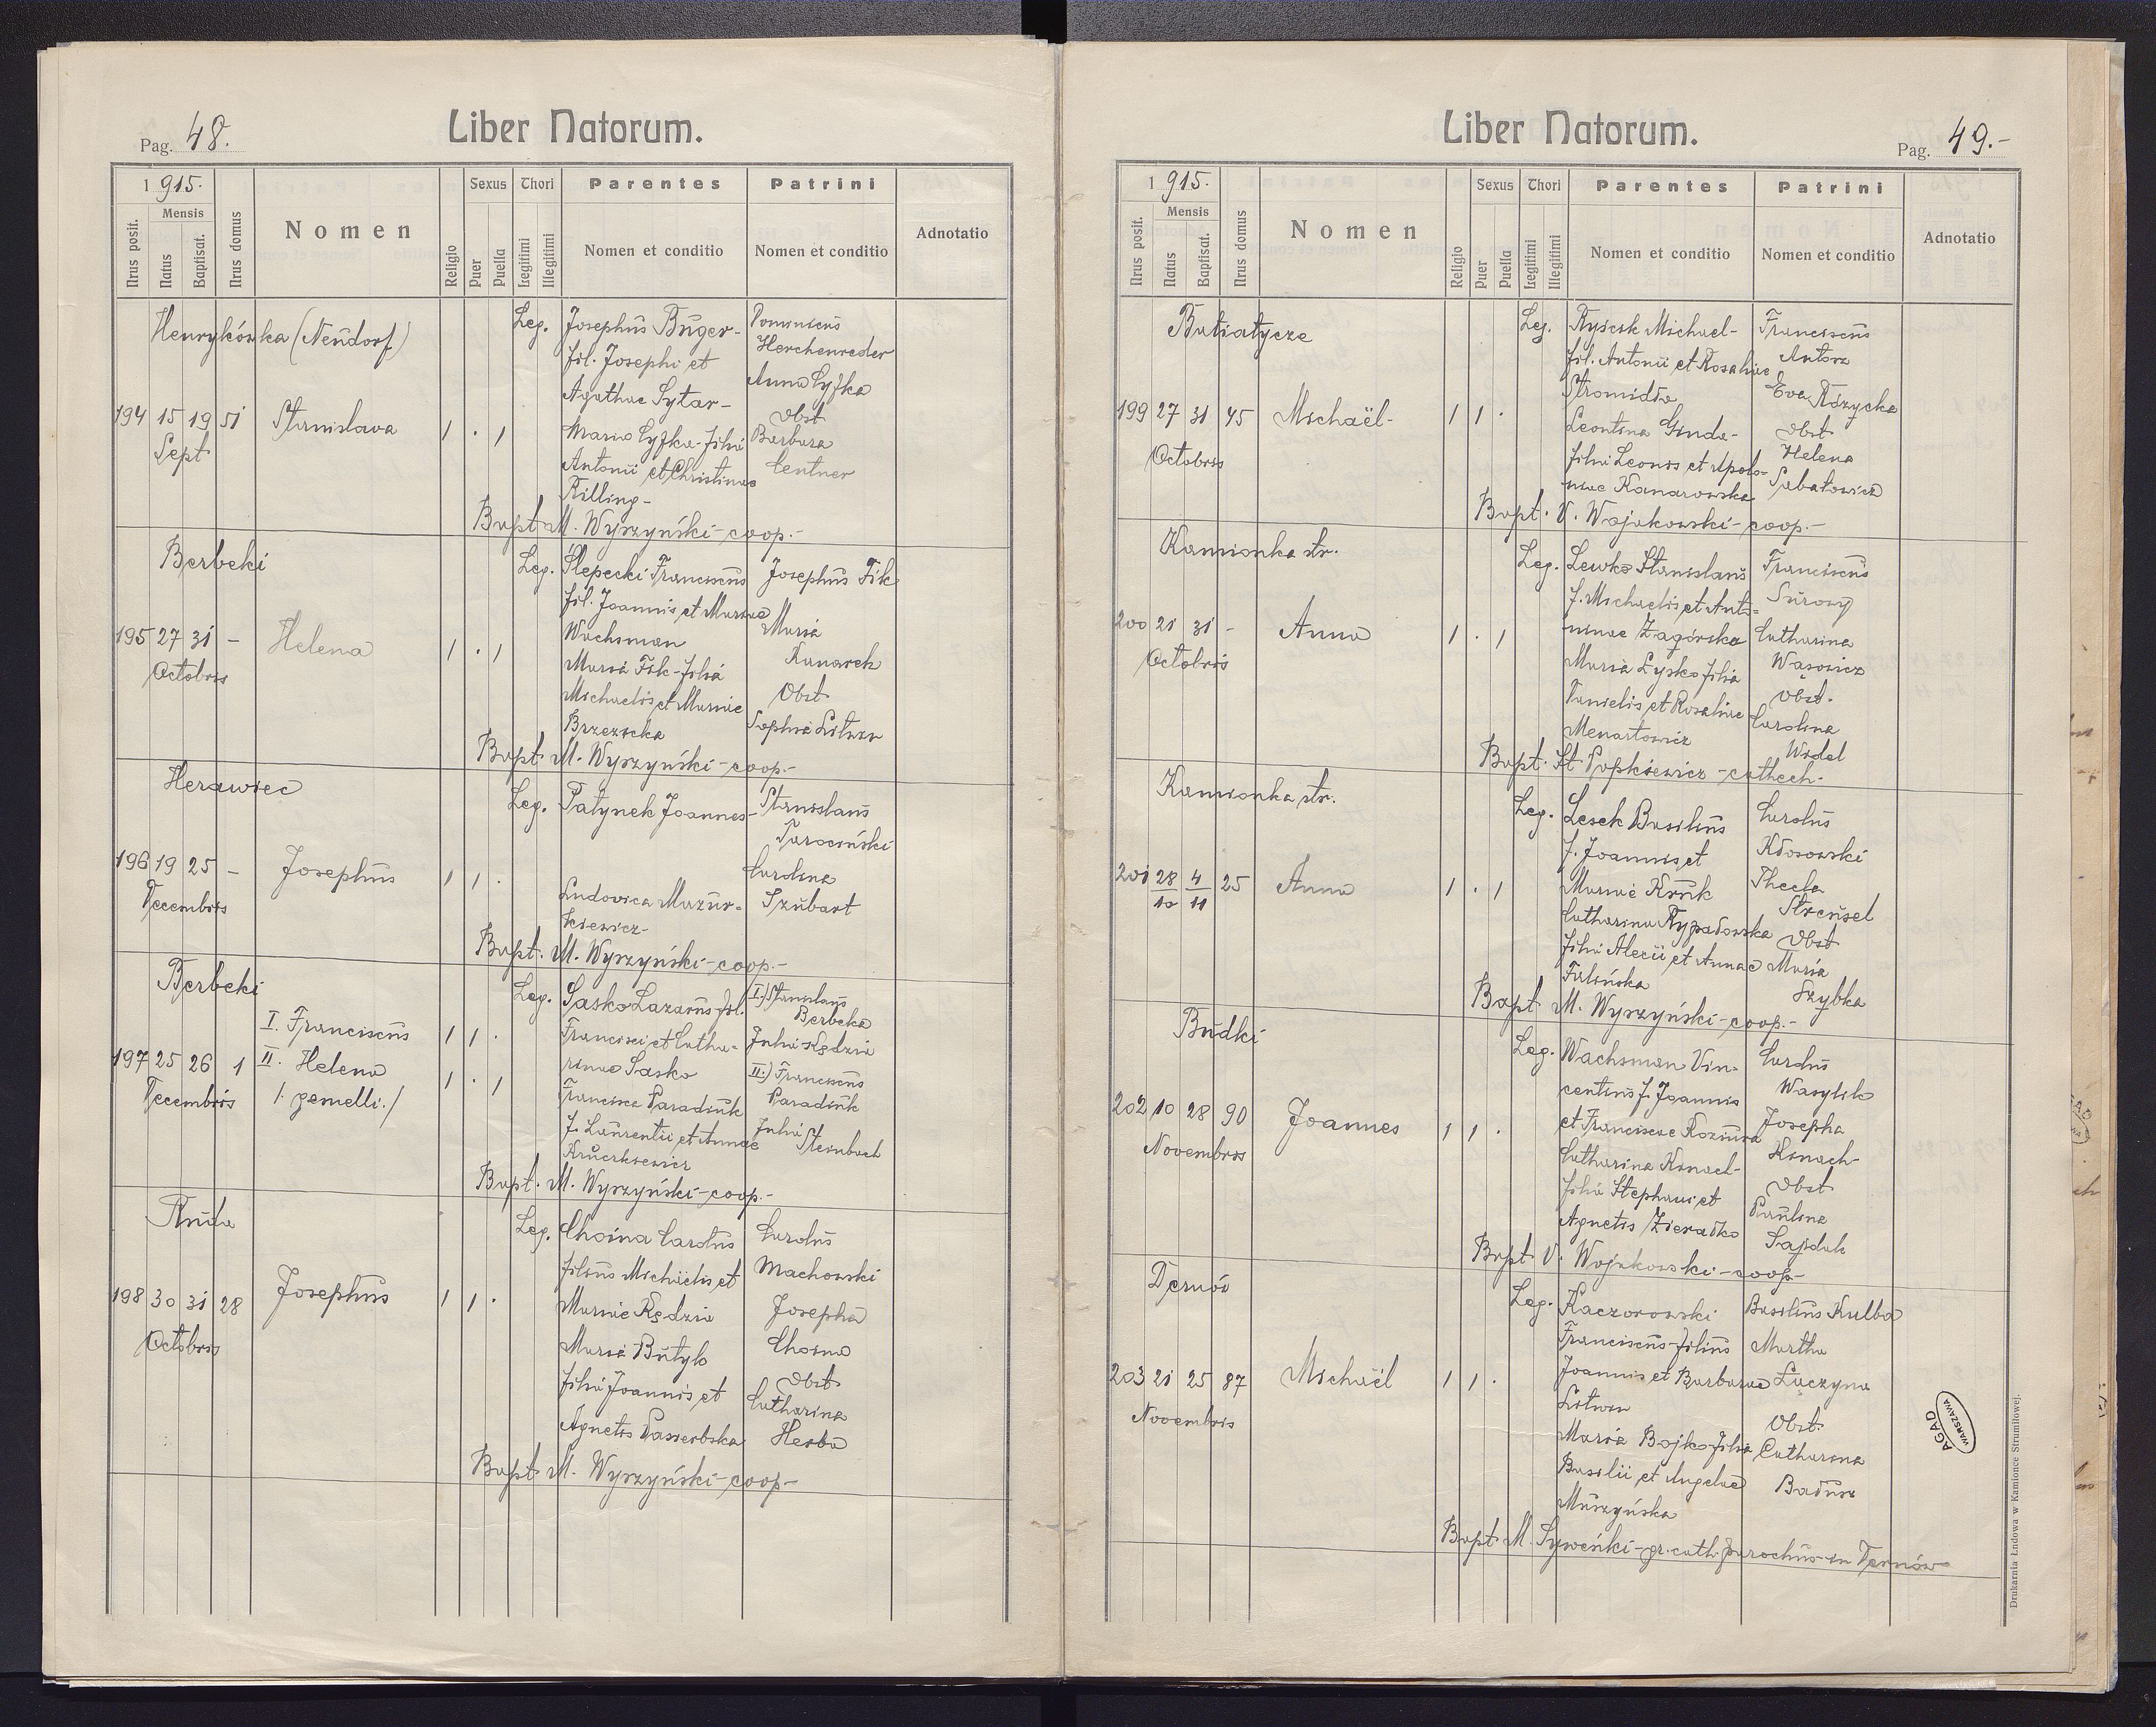 Pag. 48.
Liber Natorum.
1915.
Nrus posit.
Mensis
Natus
Baptisat.
Nrus domus
Nomen
Religio
Sexus
Puer
Puella
Thori
Legitimi
Illegitimi
Parentes
Nomen et conditio
Patrini
Nomen et conditio
Adnotatio
Henrykówka (Neudorf)
194 15 19 51 Stanislava 1 . 1
Sept
Leg. Josephus Buger-
fil. Josephi et
Agathae Sytar-
Maria Cyfka-filia
Antonii et Christinae
Killing-
Dominicus
Herchenreder
Anna Cyfka
Obst
Barbara
Centner
Bapt. M. Wyrzyński-coop.-
Berbeki
195 27 31 - Helena 1 . 1
Octobris
Leg. Ślepecki Franciscus
fil. Joannis et Mariae
Wachsman
Maria Fik-filia
Michaelis et Mariae
Brzezicka
Josephus Fik
Maria
Kanarek
Obst
Sophia Litwin
Bapt. M. Wyrzyński-coop.-
Herawiec
196 19 25 - Josephus 1 1 .
Decembris
Leg. Patynek Joannes-
Ludovica Mazur-
kiewicz-
Stanislaus
Tarociński
Carolina
Szubart
Bapt. M. Wyrzyński-coop.-
Berbeki
I. Franciscus 1 1 .
197 25 26 1 II. Helena 1 . 1
Decembris /. gemelli./
Leg. Sasko Lazarus-fil.
Francisci et Catha-
rinae Sasko
Francisca Paradiuk
f. Laurentii et Annae
Kruczkiewicz
I.) Stanislaus
Berbeka
Julia Kędzia
II.) Franciscus
Paradiuk
Julia
Steinbach
Bapt. M. Wyrzyński-coop.-
Ruda
198 30 31 28 Josephus 1 1 .
Octobris
Leg. Choina Carolus
filius Michaelis et
Mariae Kędzia
Maria Butyło
filia Joannis et
Agnetis Pasierbska
Carolus
Machowski
Josepha
Choina
Obst
Catharina
Herba
Bapt. M. Wyrzyński-coop-
Liber Natorum.
Pag. 49.-
1915.
Nrus posit.
Mensis
Natus
Baptisat.
Nrus domus
Nomen
Religio
Sexus
Puer
Puella
Thori
Legitimi
Illegitimi
Parentes
Nomen et conditio
Patrini
Nomen et conditio
Adnotatio
Batiatycze
199 27 31 45 Michaël- 1 1 .
Octobris
Leg. Rysiek Michael-
fil. Antonii et Rosaliae
Stromidło
Leontina Ginda-
filia Leonis et Apolo-
niae Kanarowska
Franciscus
Antosz
Eva Różycka
Obst
Helena
Sabatowicz
Bapt. V. Wojakowski-coop.-
Kamionka str.
200 21 31 - Anna 1 . 1
Octobris
Leg. Lewko Stanislaus
f. Michaelis et Anto-
ninae Zagórska
Maria Łysko filia
Danielis et Rosaliae
Menartowicz
Franciscus
Surowy
Catharina
Wąsowicz
Obst.
Carolina
Widel
Bapt. St. Popkiewicz-cathech.
Kamionka str.
201 28/10 4/11 25 Anna 1 . 1
Leg. Lesek Basilius
f. Joannis et
Mariae Kruk
Catharina Rypadowska
filia Alecii et Annae
Falińska
Carolus
Kłosowski
Thecla
Strensel
Obst
Maria
Szybka
Bapt M. Wyrzyński-coop.-
Budki
202 10 28 90 Joannes 1 1 .
Novembris
Leg. Wachsman Vin-
centius f. Joannis
et Franciscae Koziura
Catharina Kinach-
filia Stephani et
Agnetis Zieradko
Carolus
Wasylik
Josepha
Kinach-
Obst
Paulina
Sajdak
Bapt V. Wojakowski-coop-
Dernów
203 21 25 87 Michaël 1 1 .
Novembris
Leg. Kaczorowski
Franciscus-filius
Joannis et Barbarae
Litwin
Maria Bojko filia
Basilii et Angelae
Muszyńska
Basilius Kulba
Martha
Łuczyna
Obst.
Catharina
Badusz
Bapt. M. Syweńki-gr. cath. parochus in Dernów
AGAD
WARSZAWA
Drukarnia Łudowa w Kamionce Strumiłowej.